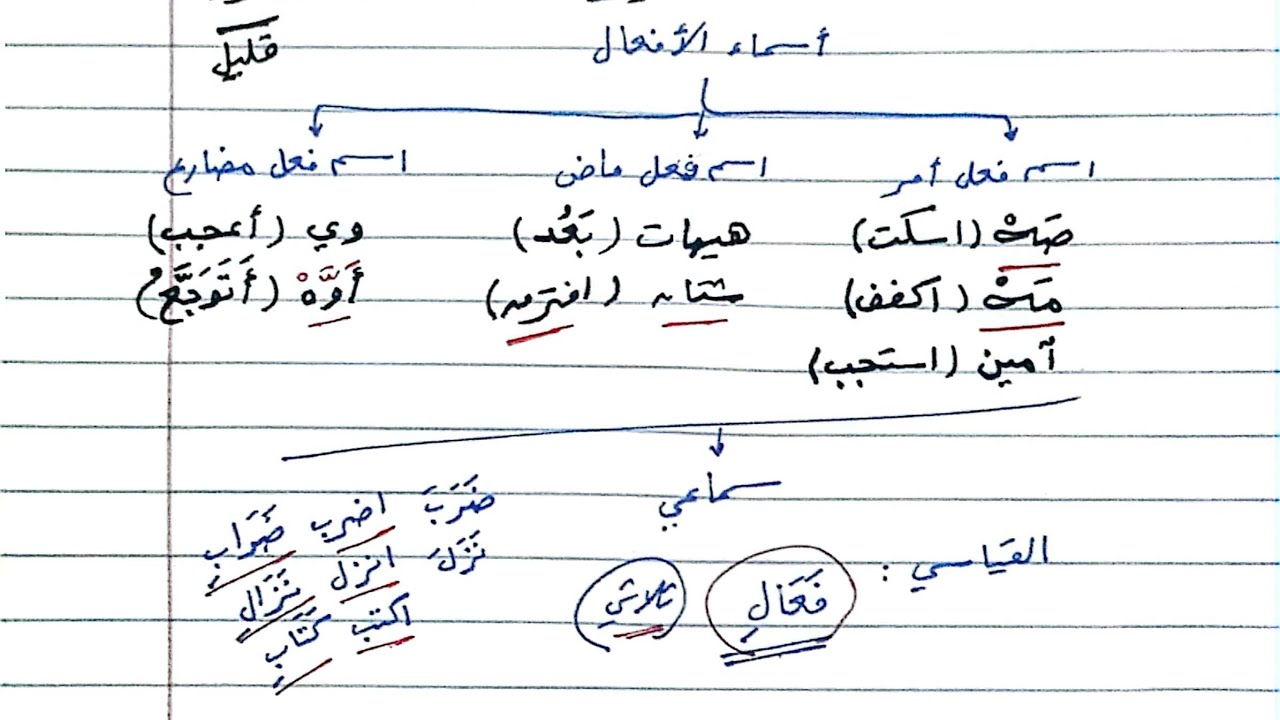 قليل
أسماء الأفعال
اسم فعل أمر اسم فعل ماض اسم فعل مضارع
صَهْ (اسكت) هيهات (بَعُدَ) وي (أعجب)
مَهْ (اكفف) شتان (افترق) أَوَّهْ (أَتَوَجَّعُ)
آمين (استجب)
سماعي
ضَرَبَ اضرب ضَرَابِ
القياسي : فَعَالِ ثلاثي
نَزَلَ انزل نَزَالِ
اكتب كَتَابِ